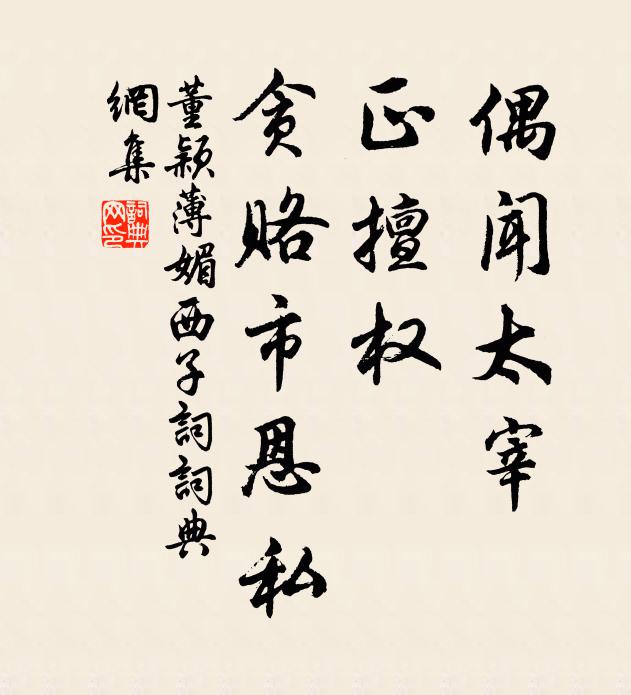 偶闻太宰
正擅权
贪赂市恩私
董颖薄媚西子詞詞典
網集
詞典網印